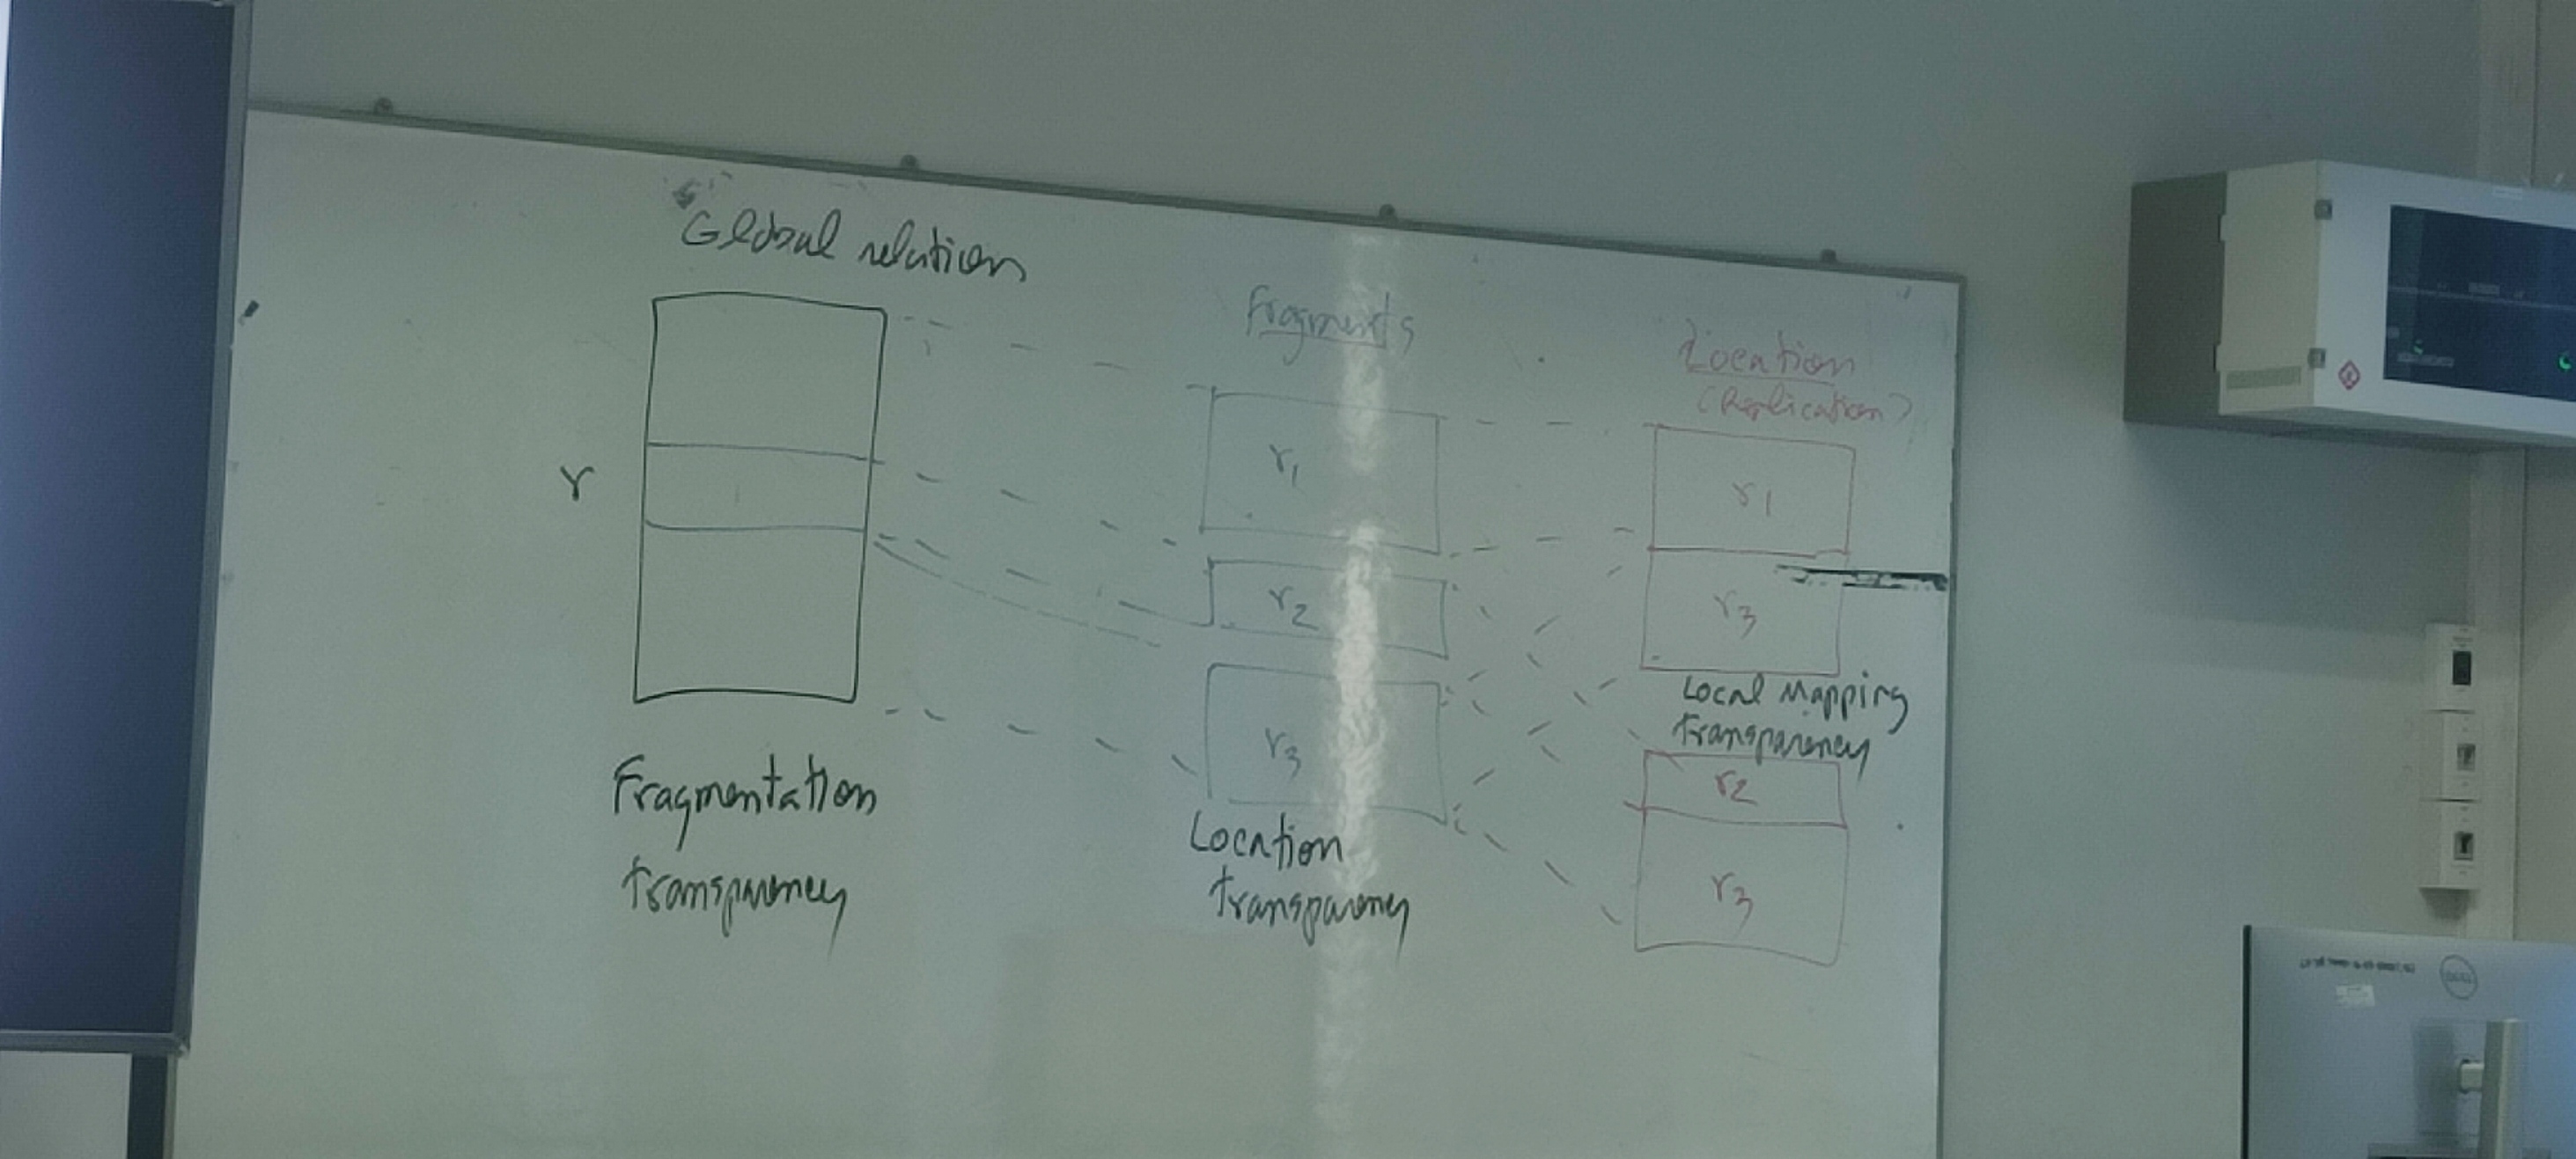 Global relation
r
Fragmentation
transparency
Fragments
r1
r2
r3
Location
transparency
Location
(Replication)
r1
r3
Local Mapping
transparency
r2
r3
DELL